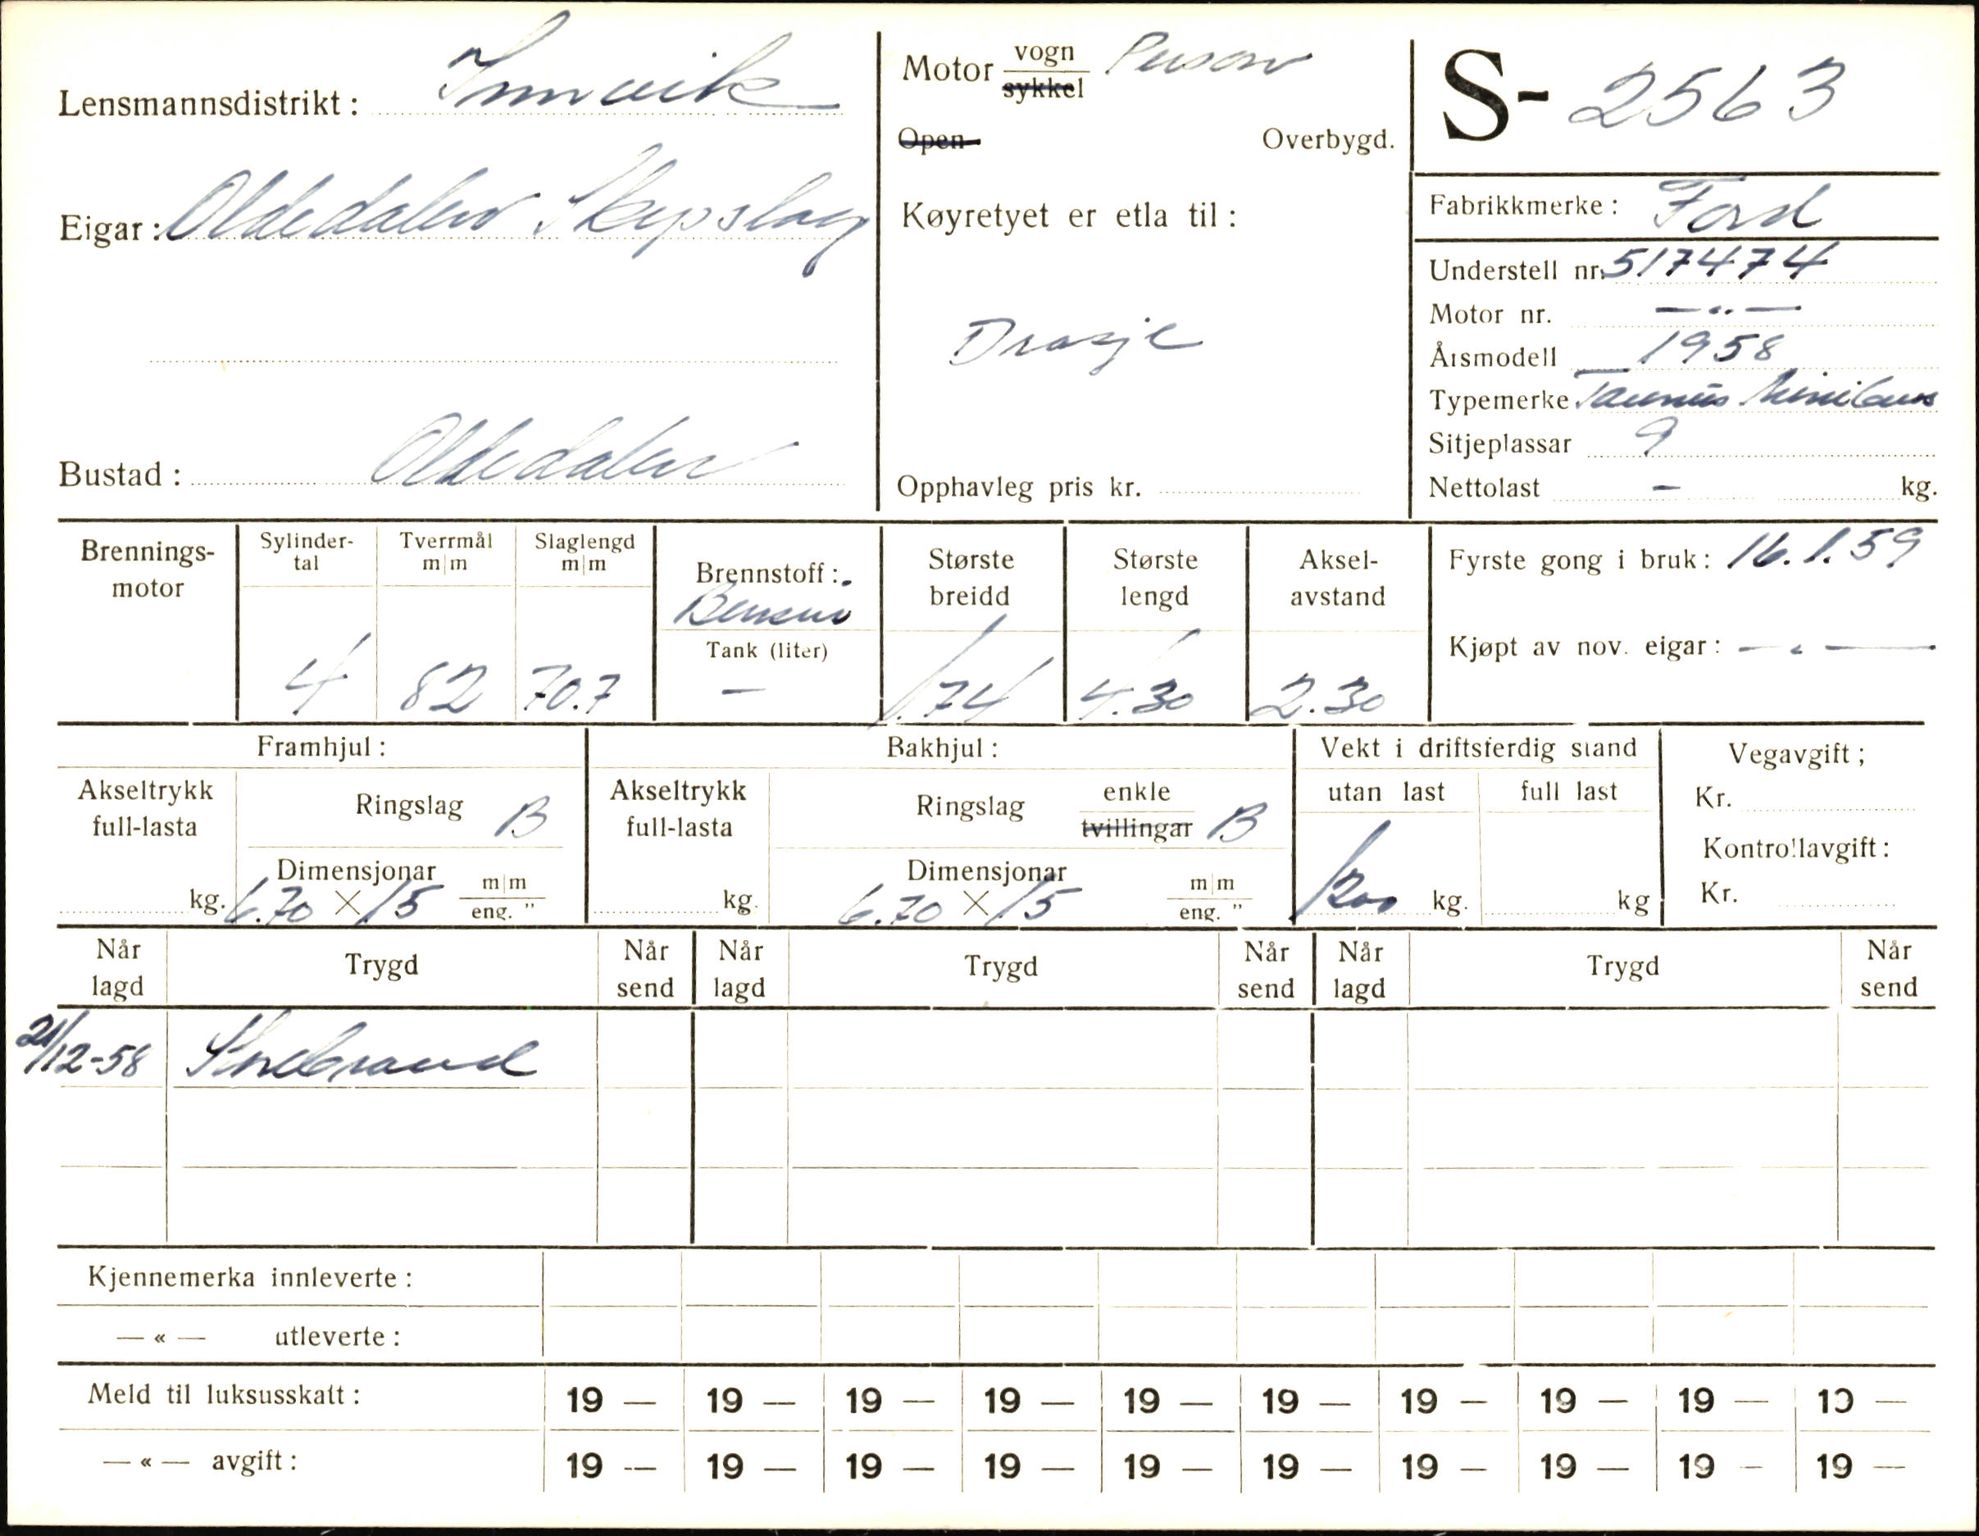 Lensmannsdistrikt: Innvik
Eigar: Oldedalen Skyssslag
Bustad: Oldedalen
Motor vogn Person
sykkel
Open Overbygd.
Køyretyet er etla til:
Drosje
Opphavleg pris kr.
S- 2563
Fabrikkmerke: Ford
Understell nr. 517474
Motor nr. — „ —
Årsmodell 1958
Typemerke Taunus Minibuss
Sitjeplassar 9
Nettolast - kg.
Brennings-
motor
Sylinder-
tal
4
Tverrmål
m|m
82
Slaglengd
m|m
70.7
Brennstoff: Bensin
Tank (liter)
-
Største
breidd
1.74
Største
lengd
4.30
Aksel-
avstand
2.30
Fyrste gong i bruk: 16.1.59
Kjøpt av nov. eigar: — „ —
Framhjul:
Akseltrykk
full-lasta
kg.
Ringslag B
Dimensjonar
6.70 X 15 m|m
eng. "
Bakhjul:
Akseltrykk
full-lasta
kg.
Ringslag enkle
tvillingar B
Dimensjonar
6.70 X 15 m|m
eng. "
Vekt i driftsferdig stand
utan last full last
1200 kg. kg
Vegavgift;
Kr.
Kontrollavgift:
Kr.
Når
lagd Trygd Når
send Når
lagd Trygd Når
send Når
lagd Trygd Når
send
21/12-58 Storebrand
Kjennemerka innleverte:
— « — utleverte:
Meld til luksusskatt: 19 — 19 — 19 — 19 — 19 — 19 — 19 — 19 — 19 — 19 —
— « — avgift: 19 — 19 — 19 — 19 — 19 — 19 — 19 — 19 — 19 — 19 —